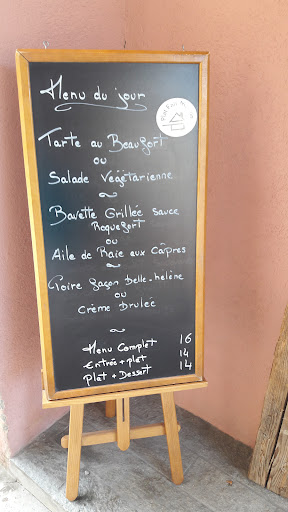 Menu du jour
Tarte au Beaufort
ou
Salade Végétarienne
~
Bavette Grillée sauce
Roquefort
ou
Aile de Raie aux Câpres
~
Poire façon Belle-hélène
ou
Crème Brulée
~
Menu Complet 16
Entrée + plat 14
Plat + Dessert 14